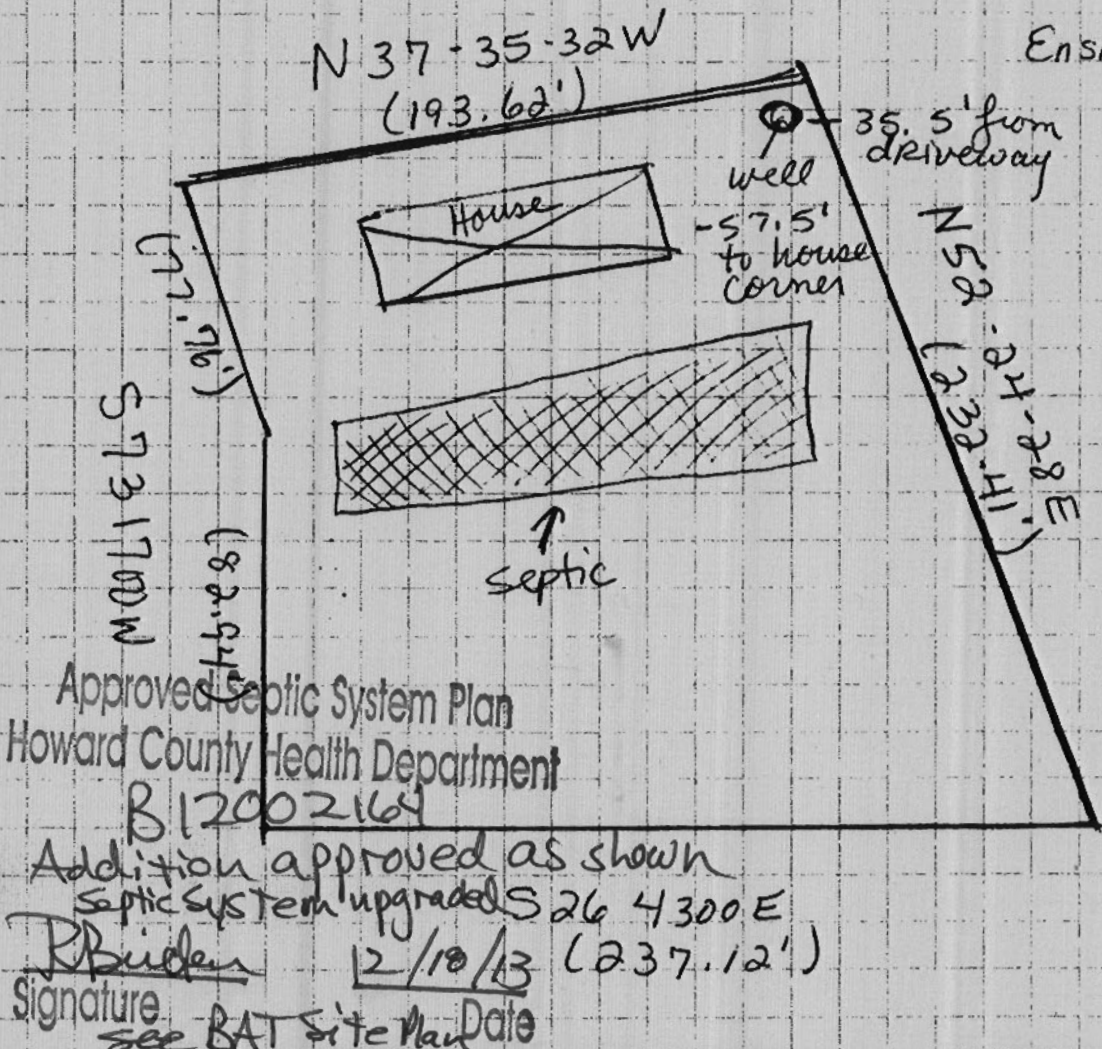 N 37-35-32W
(193.62')
Ens
35.5' from
driveway
well
-57.5'
to house
corner
House
N52-24-28E
(232.41')
(77.76')
S731700W
(82.94')
septic
Approved Septic System Plan
Howard County Health Department
B12002164
Addition approved as shown
septic system upgraded
S26 4300E
(237.12')
12/18/13
Signature
Date
see BAT Site Plan